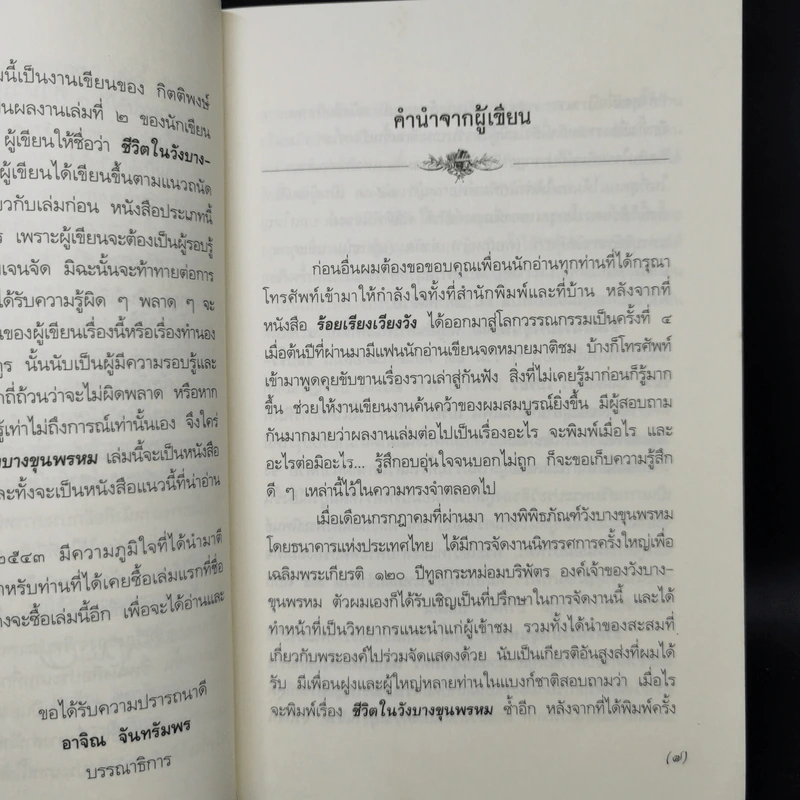 มนี้เป็นงานเขียนของ กิตติพงษ์
นผลงานเล่มที่ ๒ ของนักเขียน
ผู้เขียนให้ชื่อว่า ชีวิตในวังบาง-
ผู้เขียนได้เขียนขึ้นตามแนวถนัด
ยวกับเล่มก่อน หนังสือประเภทนี้
เพราะผู้เขียนจะต้องเป็นผู้รอบรู้
เจนจัด มิฉะนั้นจะท้าทายต่อการ
ได้รับความรู้ผิด ๆ พลาด ๆ จะ
นของผู้เขียนเรื่องนี้หรือเรื่องทำนอง
นั้นนับเป็นผู้มีความรอบรู้และ
ถี่ถ้วนว่าจะไม่ผิดพลาด หรือหาก
รู้เท่าไม่ถึงการณ์เท่านั้นเอง จึงใคร่
บางขุนพรหม เล่มนี้จะเป็นหนังสือ
และทั้งจะเป็นหนังสือแนวนี้ที่น่าอ่าน
๒๕๔๓ มีความภูมิใจที่ได้นำมาตี
สำหรับท่านที่ได้เคยซื้อเล่มแรกที่ชื่อ
จะซื้อเล่มนี้อีก เพื่อจะได้อ่านและ
ขอได้รับความปรารถนาดี
อาจิณ จันทรัมพร
บรรณาธิการ
คำนำจากผู้เขียน
ก่อนอื่นผมต้องขอขอบคุณเพื่อนนักอ่านทุกท่านที่ได้กรุณา
โทรศัพท์เข้ามาให้กำลังใจทั้งที่สำนักพิมพ์และที่บ้าน หลังจากที่
หนังสือ ร้อยเรียงเวียงวัง ได้ออกมาสู่โลกวรรณกรรมเป็นครั้งที่ ๔
เมื่อต้นปีที่ผ่านมามีแฟนนักอ่านเขียนจดหมายมาติชม บ้างก็โทรศัพท์
เข้ามาพูดคุยขับขานเรื่องราวเล่าสู่กันฟัง สิ่งที่ไม่เคยรู้มาก่อนก็รู้มาก
ขึ้น ช่วยให้งานเขียนงานค้นคว้าของผมสมบูรณ์ยิ่งขึ้น มีผู้สอบถาม
กันมากมายว่าผลงานเล่มต่อไปเป็นเรื่องอะไร จะพิมพ์เมื่อไร และ
อะไรต่อมิอะไร... รู้สึกอบอุ่นใจจนบอกไม่ถูก ก็จะขอเก็บความรู้สึก
ดี ๆ เหล่านี้ไว้ในความทรงจำตลอดไป
เมื่อเดือนกรกฎาคมที่ผ่านมา ทางพิพิธภัณฑ์วังบางขุนพรหม
โดยธนาคารแห่งประเทศไทย ได้มีการจัดงานนิทรรศการครั้งใหญ่เพื่อ
เฉลิมพระเกียรติ ๑๒๐ ปีทูลกระหม่อมบริพัตร องค์เจ้าของวังบาง-
ขุนพรหม ตัวผมเองก็ได้รับเชิญเป็นที่ปรึกษาในการจัดงานนี้ และได้
ทำหน้าที่เป็นวิทยากรแนะนำแก่ผู้เข้าชม รวมทั้งได้นำของสะสมที่
เกี่ยวกับพระองค์ไปร่วมจัดแสดงด้วย นับเป็นเกียรติอันสูงส่งที่ผมได้
รับ มีเพื่อนฝูงและผู้ใหญ่หลายท่านในแบงก์ชาติสอบถามว่า เมื่อไร
จะพิมพ์เรื่อง ชีวิตในวังบางขุนพรหม ซ้ำอีก หลังจากที่ได้พิมพ์ครั้ง
(๗)